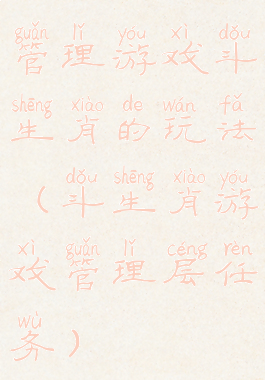 guǎn lǐ yóu xì dǒu
管理游戏斗
shēng xiào de wán fǎ
生肖的玩法
dǒu shēng xiào yóu
（斗生肖游
xì guǎn lǐ céng rèn
戏管理层任
wù
务）